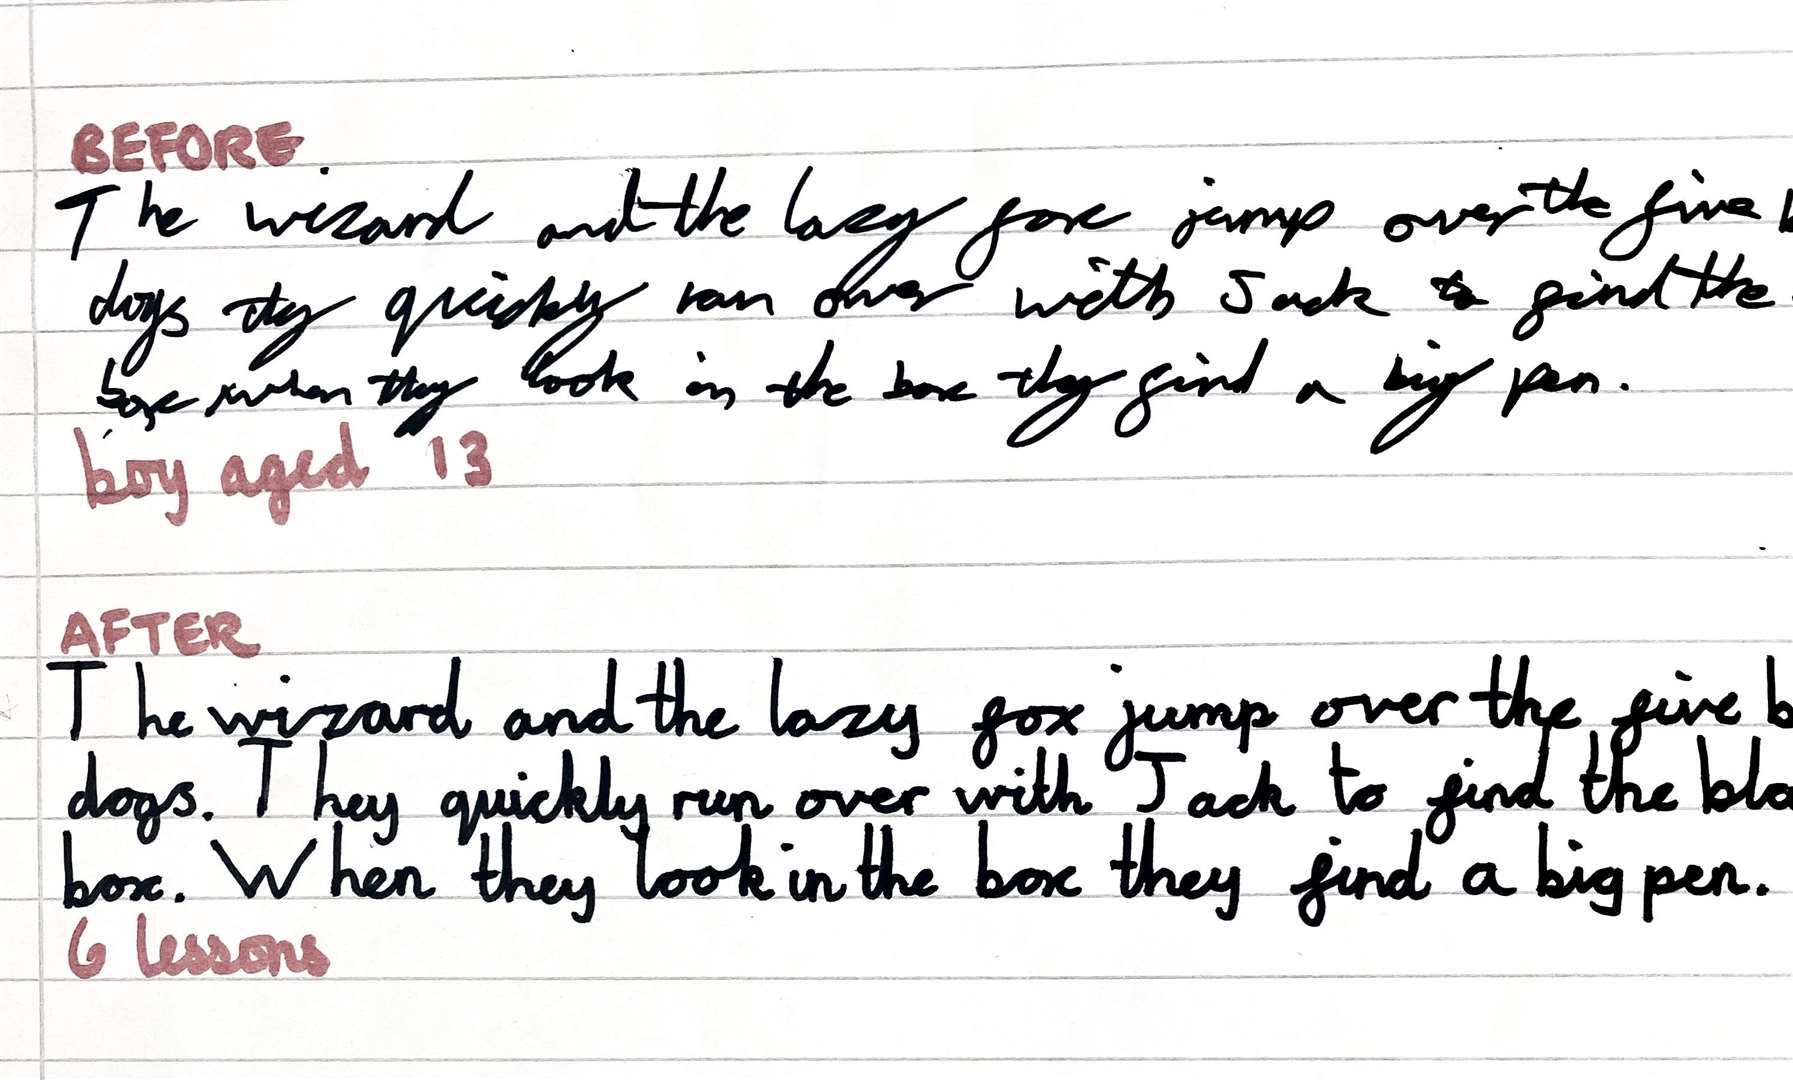 BEFORE
The wizard and the lazy fox jump over the five b
dogs thy quickly ran over with Jack to find the
box when they look in the box they find a big pen.
boy aged 13
AFTER
The wizard and the lazy fox jump over the five b
dogs. They quickly run over with Jack to find the bla
box. When they look in the box they find a big pen.
6 lessons